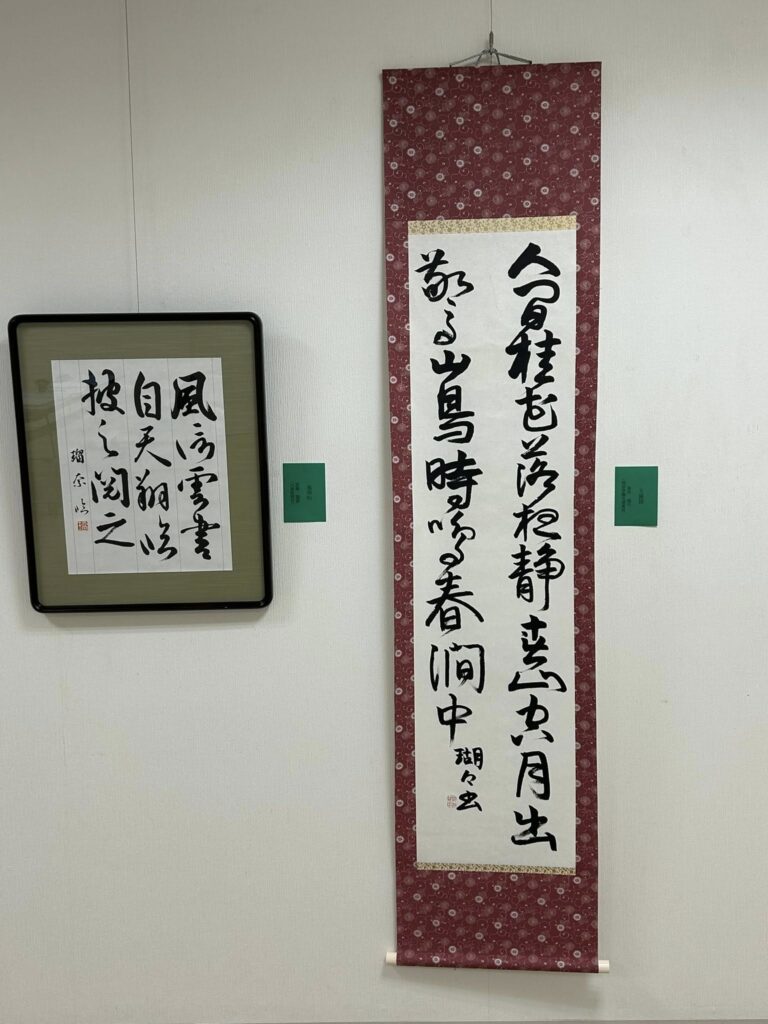 人間桂花落夜静春山空月出
驚山鳥時鳴春澗中
瑚々書
風信雲書
自天翔臨
披之閲之
瑠奈臨